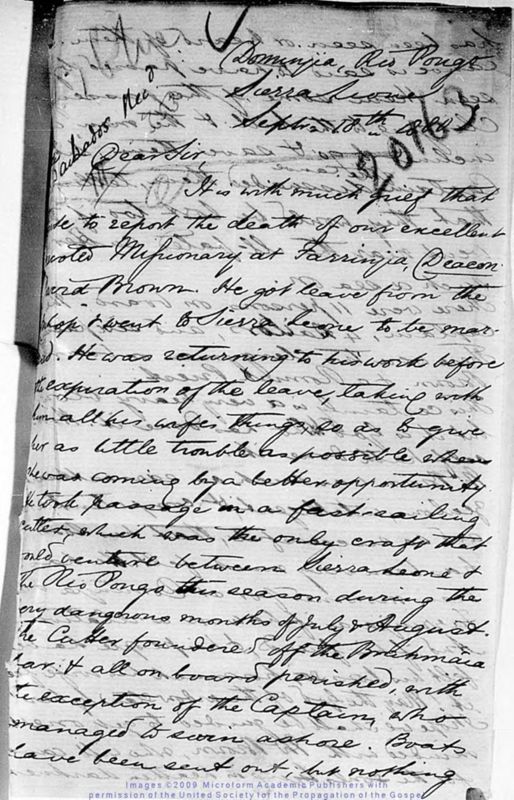 Dominjia, Rio Pongo
Sierra Leone
Septr. 18th 188
20113
Barbados Recd
Dear Sir,
It is with much grief that
to report the death of our excellent
voted Missionary at Farrinjia, Deacon
Brown. He got leave from the
shop & went to Sierra Leone to be mar-
d. He was returning to his work before
the expiration of the leave, taking with
him all his wife's things, so as to give
her as little trouble as possible when
she was coming by a better opportunity.
He took passage in a fast-sailing
cutter, which was the only craft that
ould venture between Sierra Leone &
the Rio Pongo this season during the
ery dangerous months of July & August.
The Cutter foundered off the Brahmaia
bar: & all on board perished, with
the exception of the Captain, who
managed to swim ashore. Boats
have been sent out, but nothing
Images ©2009 Microform Academic Publishers with
permission of the United Society for the Propagation of the Gospel